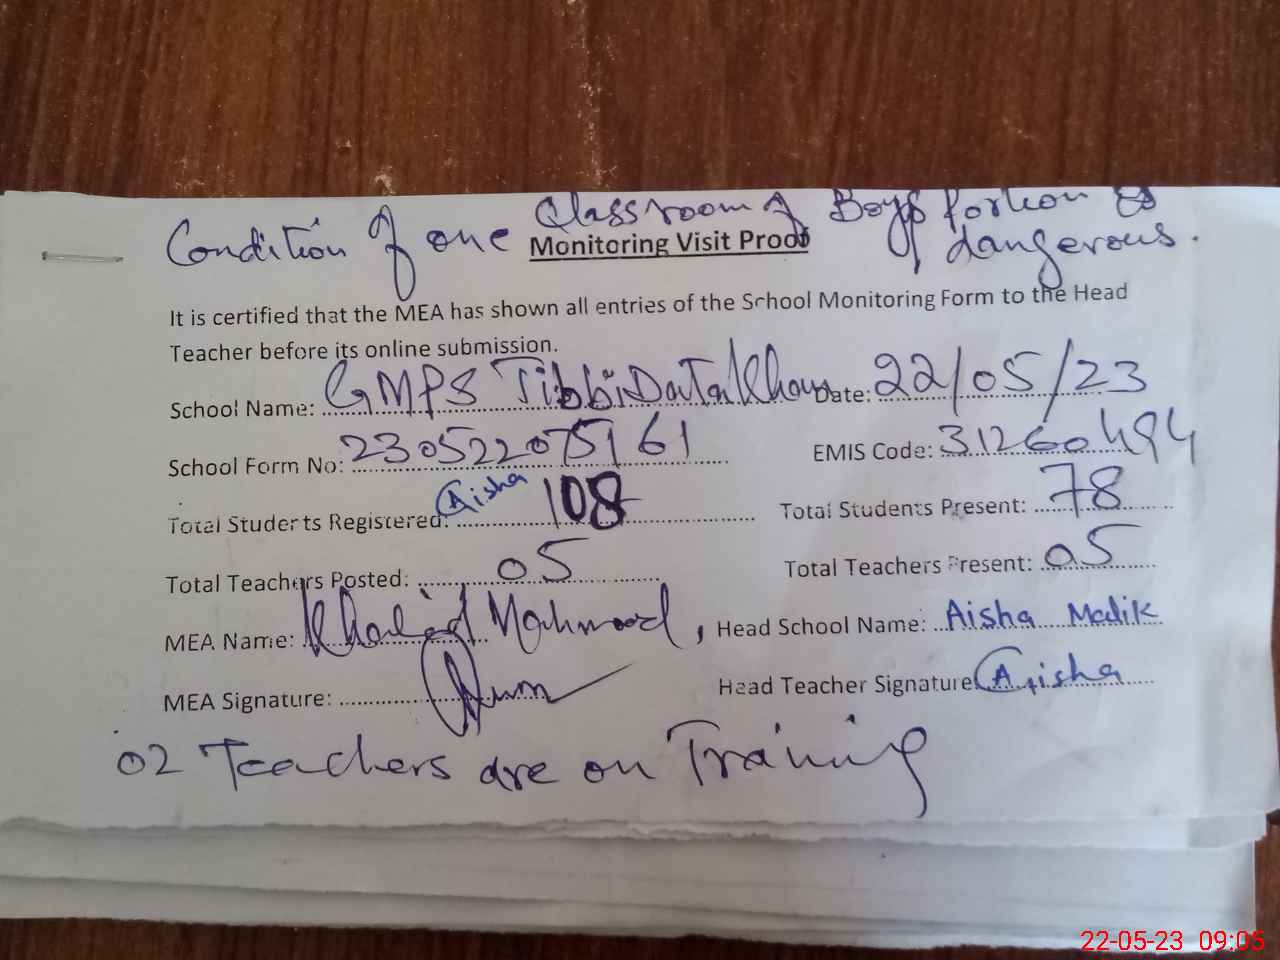 Condition of one Classroom of Boys Portion is dangerous.
Monitoring Visit Proof
It is certified that the MEA has shown all entries of the School Monitoring Form to the Head
Teacher before its online submission.
School Name: GMPS Tibbi Data Khan Date: 22/05/23
School Form No: 230522075161 EMIS Code: 31260494
Total Students Registered: Aisha 108 Total Students Present: 78
Total Teachers Posted: 05 Total Teachers Present: 05
MEA Name: Khalid Mahmood, Head School Name: Aisha Malik
MEA Signature: Head Teacher Signature Aisha
02 Teachers are on Training
22-05-23 09:05